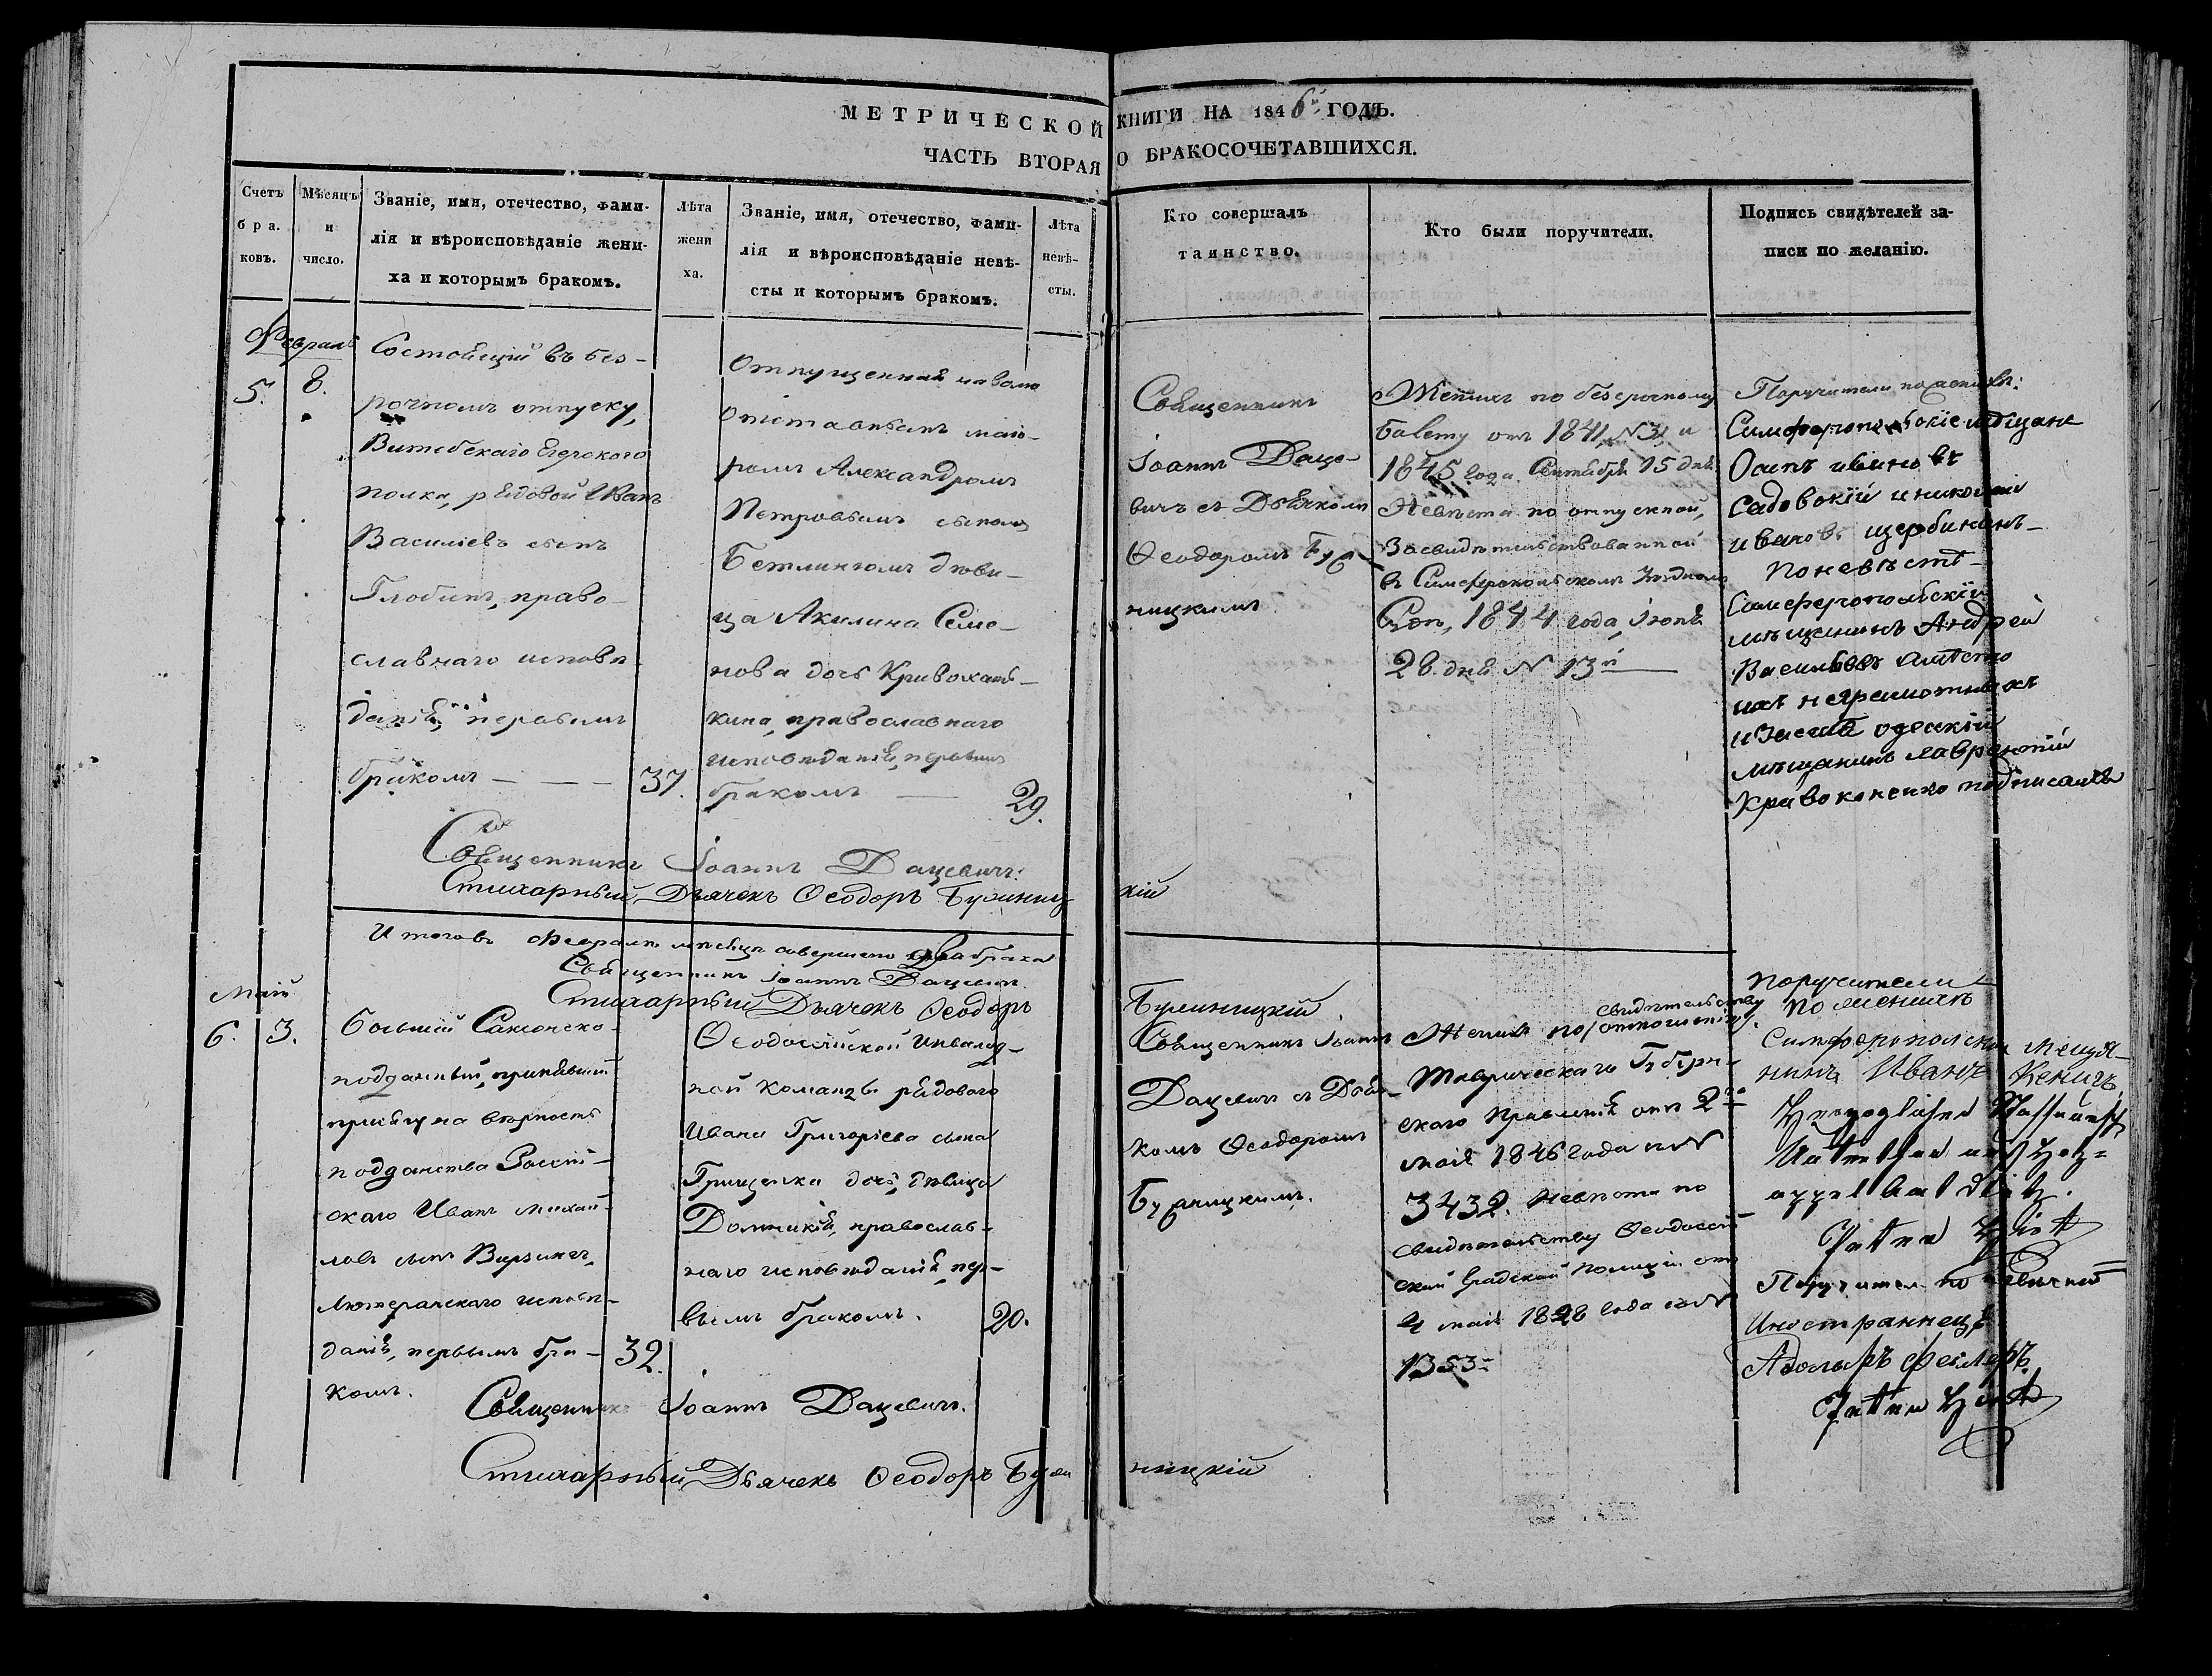 МЕТРИЧЕСКОЙ КНИГИ НА 1846й ГОДЪ.
ЧАСТЬ ВТОРАЯ О БРАКОСОЧЕТАВШИХСЯ.
Счетъ
бра.
ковъ.
Мѣсяцъ
и
число.
Званіе, имя, отечество, фами-
лія и вѣроисповѣданіе жени-
ха и которымъ бракомъ.
Лѣта
жени
ха.
Званіе, имя, отечество, фами-
лія и вѣроисповѣданіе невѣ-
сты и которымъ бракомъ.
Лѣта
невѣ-
сты.
Кто совершалъ
таинство.
Кто были поручители.
Подпись свидѣтелей за-
писи по желанію.
Февраль
5. 8.
Состоящій въ без-
рочномъ отпуску,
Витебскаго Егерского
полка, рядовой Иванъ
Василіевъ сынъ
Глобинъ, право-
славнаго исповѣ-
данія, первымъ
бракомъ — — — 37.
Отпущенная на волю
отставнымъ маіо-
ромъ Александромъ
Петровымъ сыномъ
Бетлингомъ дѣви-
ца Акилина Семе-
нова дочь
кина, православнаго
исповѣданія, первымъ
бракомъ — 29.
Священникъ
Іоаннъ Даце-
вичъ съ Дьячкомъ
Ѳеодоромъ
ницкимъ
Женихъ по безсрочному
билету отъ 1841, №31 и
1845 года Сентября 15 дня.
Невѣста по отпускной,
Засвидѣтельствованной
въ Симферопольскомъ Уѣздномъ
1844 года, Іюня
28 дня № 13й —
Поручители по женихѣ:
Симферопольскіе мѣщане
Осипъ ивановъ
Садовскій и николай
ивановъ щербининъ —
По невѣстѣ —
Симферопольскій
мѣщанинъ Андрей
Васильевъ
ихъ неграмотныхъ
одескій
мѣщанинъ лаврентій
подписался
Священникъ Іоаннъ Дацевичъ.
Стихарный Дьячекъ Ѳеодоръ Бужиницкій
Итого въ Февралѣ мѣсяцѣ совершено два брака
Священникъ Іоаннъ Дацевичъ
Стихарный Дьячекъ Ѳеодоръ Бужиницкій
Май
6. 3.
бывшій Саксонско-
подданный, принявшій
присягу на вѣрность
подданства Россій-
скаго Иванъ Михай-
ловъ сынъ Вирзингъ,
Лютеранскаго исповѣ-
данія, первымъ бра- 32.
комъ.
Ѳеодосійской Инвалид-
ной команды рядоваго
Ивана Григоріева сына
Грищенка дочь, дѣвица
Домникія, православ-
наго исповѣданія, пер-
вымъ бракомъ. 20.
Священникъ Іоаннъ
Дацевичъ съ Дьяч-
комъ Ѳеодоромъ
свидѣтельству
Женихъ по отношенію
Таврическаго Губерн-
скаго Правленія отъ 2го
мая 1846 года за №
3432. Невѣста по
свидѣтельству Ѳеодосій-
ской Градской Полиціи отъ
мая 18 8 года за №
1353 —
Поручители
по женихѣ
Симферопольской Мещя-
нинъ Иванъ Кенигъ
Поручител по невѣстѣ
Иностраннецъ
Адольфъ
Священникъ Іоаннъ Дацевичъ.
Стихарный Дьячекъ Ѳеодоръ Бужиницкій